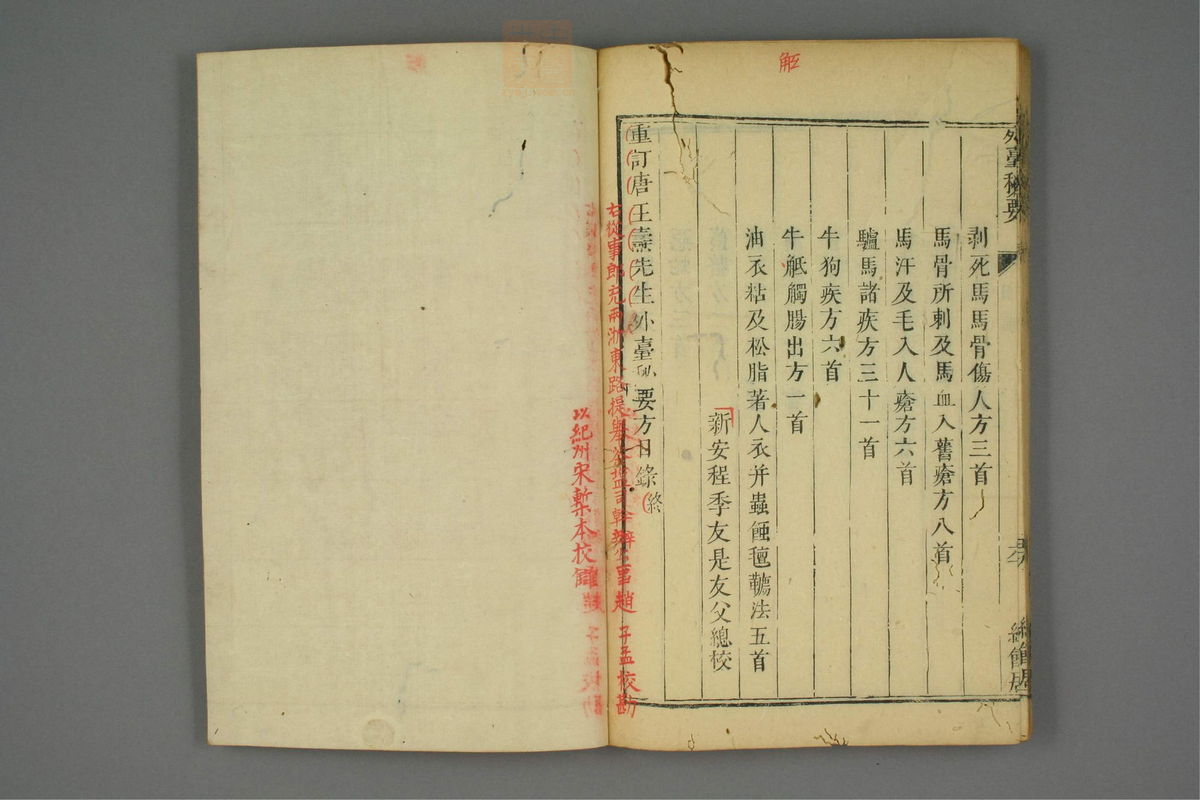 解
外臺秘要
剥死馬馬骨傷人方三首
馬骨所刺及馬血入舊瘡方八首
馬汗及毛入人瘡方六首
驢馬諸疾方三十一首
牛狗疾方六首
牛觝觸腸出方一首
油衣粘及松脂著人衣并蟲蝕氊韉法五首
新安程季友是友父總校
重訂唐王燾先生外臺秘要方目錄終
右從事郎充兩浙東路提舉茶鹽司幹辦公事趙子孟校勘
以紀州宋槧本校讎